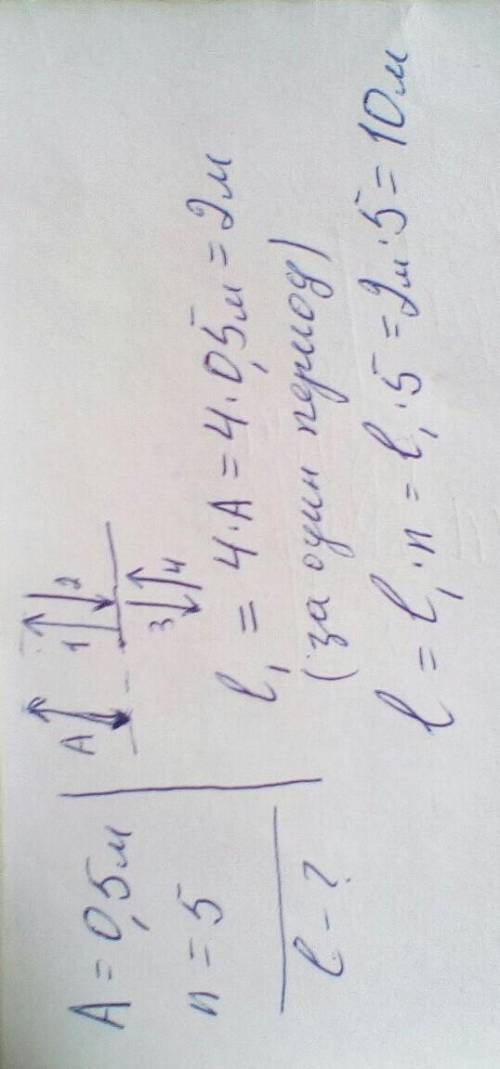 A = 0,5м
n = 5
l - ?
A 1 2
3 4
l₁ = 4·A = 4·0,5м = 2м
(за один период)
l = l₁·n = l₁·5 = 2м·5 = 10м